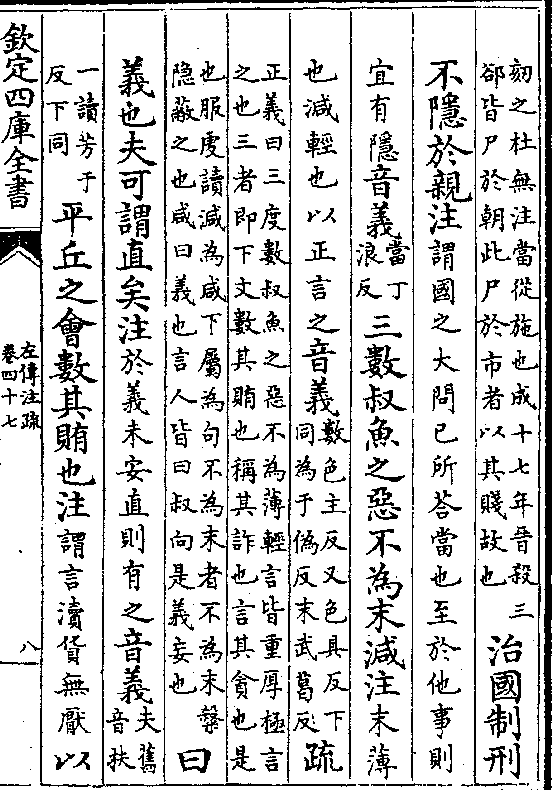 劾之杜無注當從施也成十七年晉殺三
郤皆尸於朝此尸於市者以其賤故也
治國制刑
不隱於親注謂國之大問已所荅當也至於他事則
宜有隱音義當丁浪反三數叔魚之惡不為末減注末薄
也減輕也以正言之音義數色主反又色具反下同為于偽反末武葛反疏
正義曰三度數叔魚之惡不為薄輕言皆重厚極言
之也三者即下文數其賄也稱其詐也言其貪也是
也服虔讀減為咸下屬為句不為末者不為末槃
隐蔽之也咸曰義也言人皆曰叔向是義妄也
曰
義也夫可謂直矣注於義未安直則有之音義夫舊音扶
一讀芳于反下同平丘之會數其賄也注謂言瀆貨無厭以
欽定四庫全書
左傳注疏
卷四十七
八